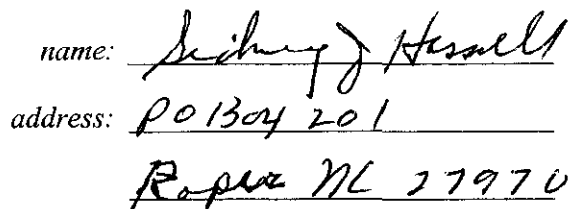 name: Sidney J Hassell
address: PO Box 201
Roper NC 27970